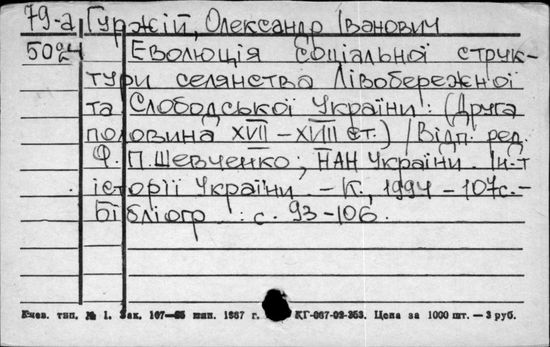 79-а Гуржій, Олександр Іванович
5024 Еволюція соціальної струк-
тури селянства Лівобережної
та Слободської України: (Друга
половина XVII – XVIII ст.) / Відп. ред.
Ф. П. Шевченко; НАН України. Ін-т
історії України. – К., 1994 – 107с. –
Бібліогр.: с. 93-106.
Киев. тип. № 1. Зак. 107— 1987 г. КГ-067-09-353. Цена за 1000 шт. — 3 руб.